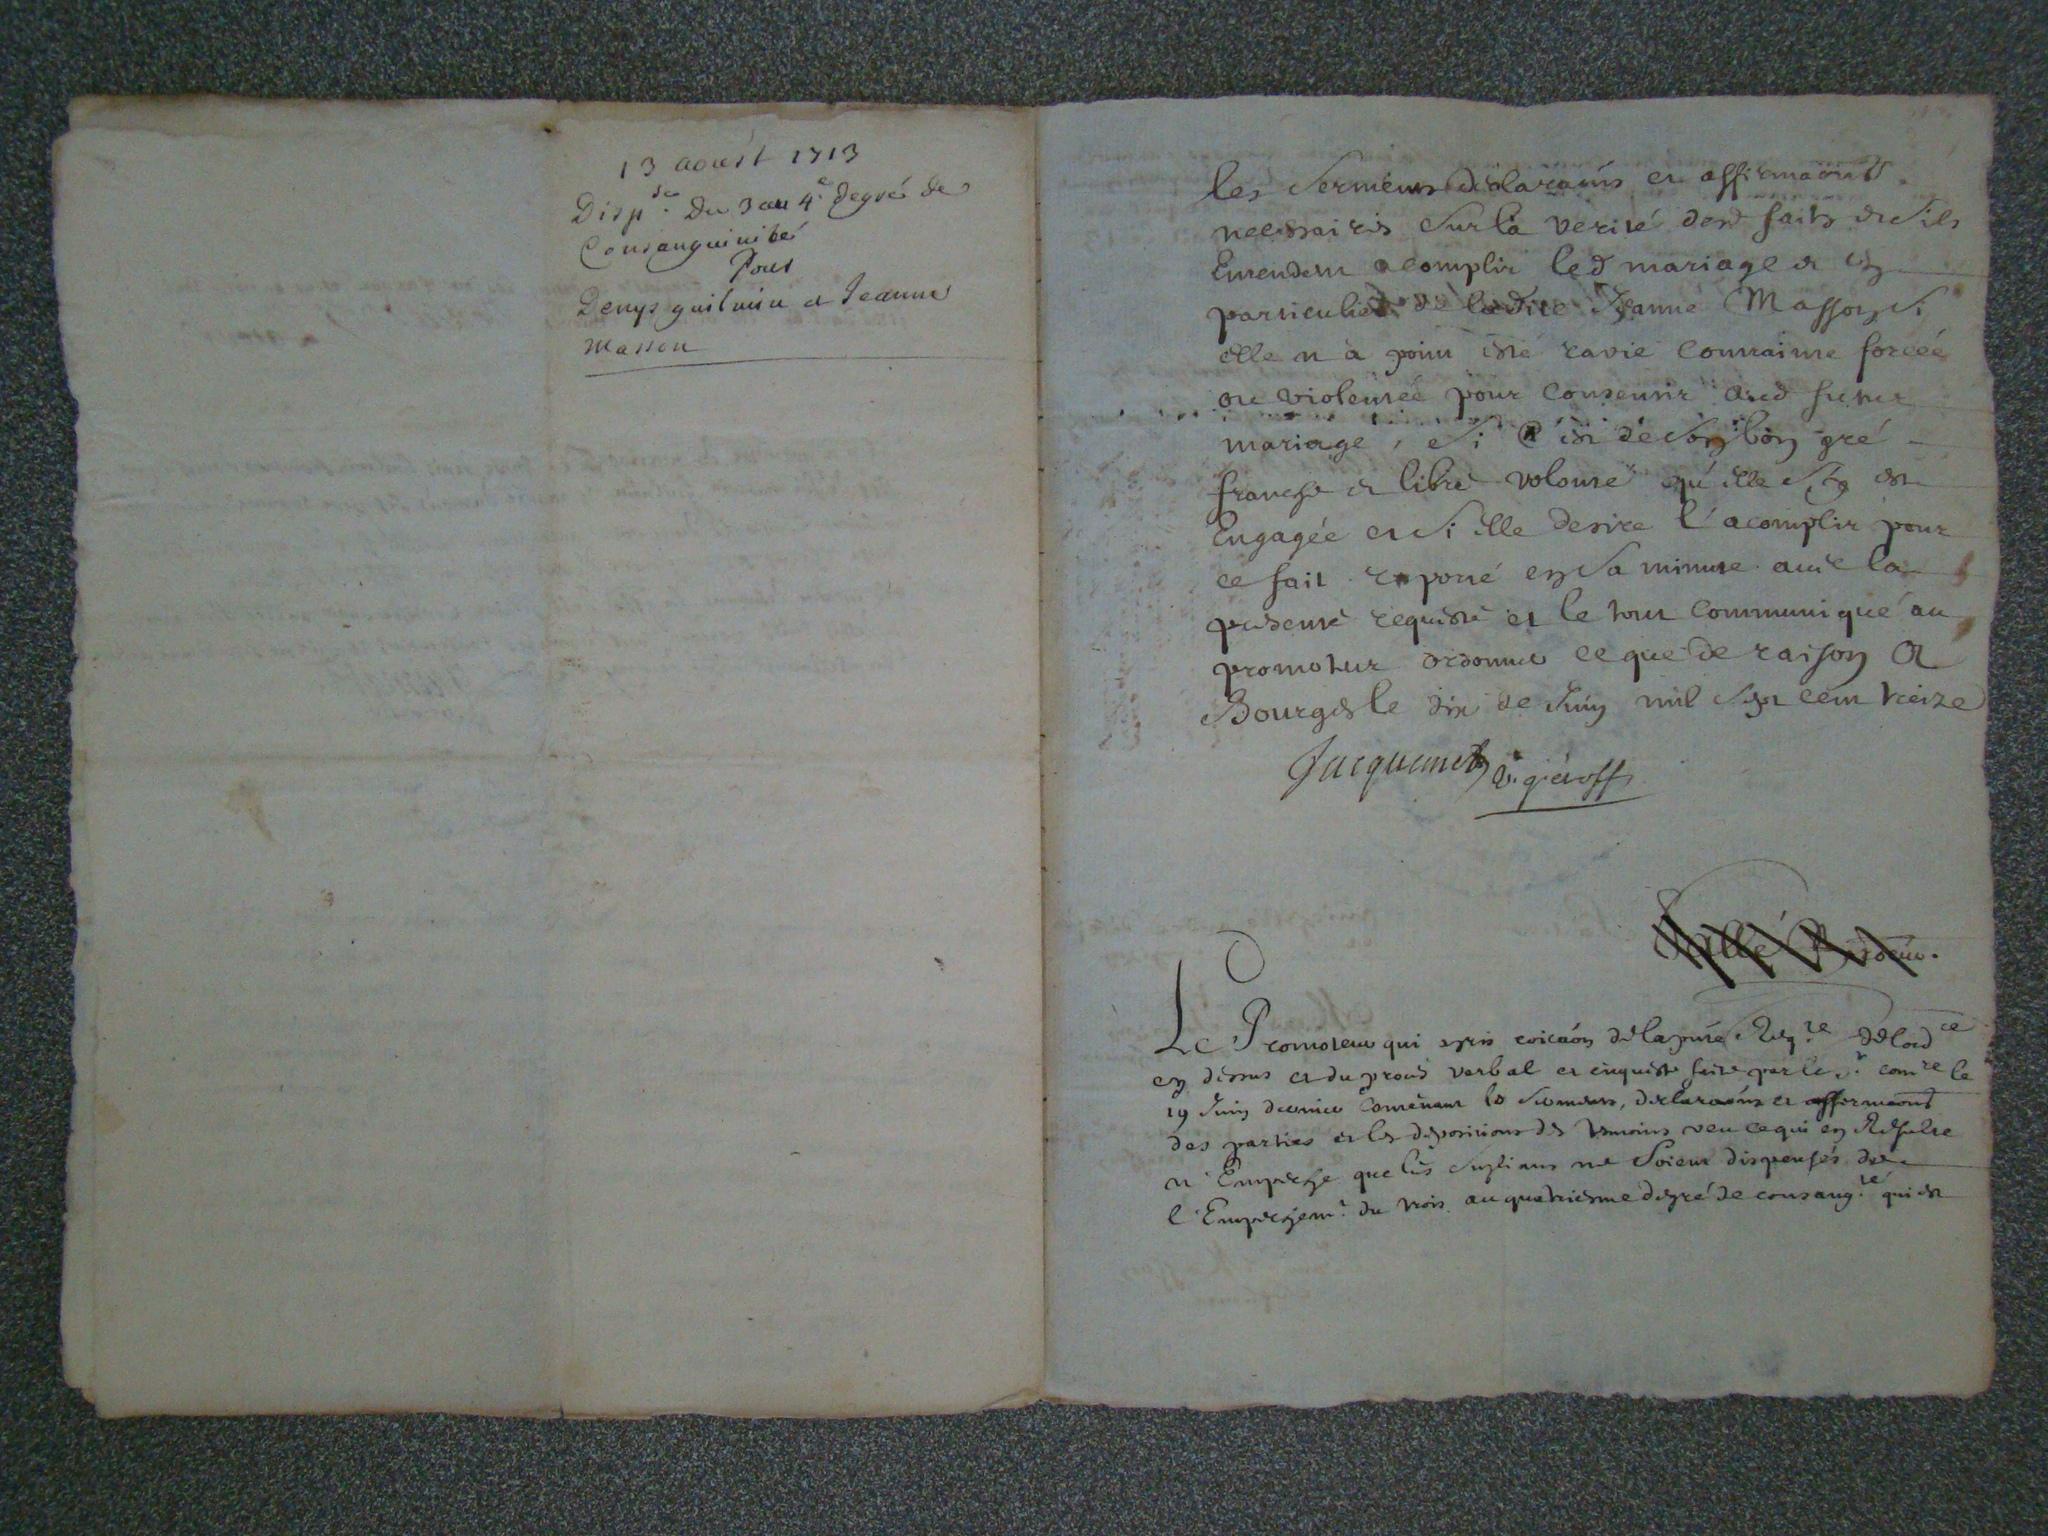 13 aoust 1713
Disp.se Du 3 au 4.e degré de
Consanguinité
Pour
Denys guilmin et Jeanne
Masson
les sermens declaraõns et affirmaõns
necessaires sur la verité desd faits et s'ils
Entendent acomplir led mariage et en
particulier de ladite Jeanne Masson si
elle n'a point esté ravie contrainte forcée
ou violentée pour consentir aud futur
mariage, si c'est de son bon gré
franche et libre volonté qu'elle s'y est
Engagée et si elle desire l'acomplir pour
ce fait raporté en sa minute avec la
presente requeste et le tout communiqué au
promoteur ordonner ce que de raison A
Bourges le dix de Juin mil sept cent treize
Jacquemet v. g. et off
Le Promoteur qui a pris coicaõn de la pnte Req.te de lord.ce
cy dessus et du proces verbal et enqueste faite par le s.r com.re le
19 Juin dernier contenant les sermens, declaraõns et affirmaõns
des parties et les depositions des temoins veu ce qui en Resulte
n'Empesche que les suplians ne soient dispensés de
l'Empeschem.t du trois au quatriesme degré de consang.té qui est